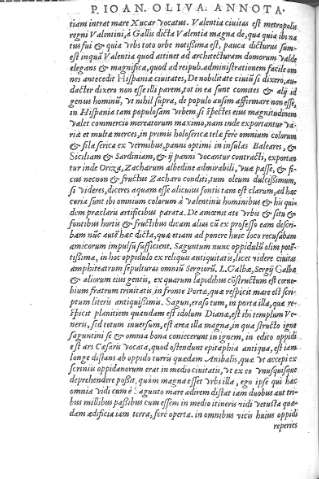 P. IOAN. OLIVA. ANNOTA.
tiam intrat mare Xucar vocatus. Valentia ciuitas est metropolis
regni Valentini, à Gallis dicta Valentia magna de, qua quia ibi na
tus fui & quia Vrbs toto orbe notissima est, pauca dicturus sum
est inquā Valentia quod attinet ad architecturam domorum valde
elegans & magnifica, quod ad reipub. administrationem facilè om
nes antecedit Hispaniæ ciuitates, De nobilitate ciuiū si dixero, au-
dacter dixero non esse illi parem, tot in ea sunt comites & alij id
genus hominū, vt nihil supra, de populo ausim affirmare non esse,
in Hispania tam populosam vrbem si spectes eius magnitudinem
valet commercio mercatorum maximo, nam inde exportantur va-
ria et multa merces, in primis holoserica telæ ferè omnium colorum
& sila serica ex vermibus, panni optimi in insulas Baleares, &
Siciliam & Sardiniam, & ij panni vocantur contracti, exportan
tur inde Oriza, Zacharum albedine admirabili, vuæ passæ, & fi-
cus nocum & fructus Zacharo conditi, tum oleum dulcissimum,
si videres, diceres aquam esse olicuius fontis tam est clarum, ad hæc
curia sunt ibi omnium colorum à Valentinis hominibus & his qui
dem præclari artificibus parata. De amœnitate vrbis & situ &
fontibus hortis & fructibus dicam alius cū ex professo eam descri-
bam nūc aut hæc dicta, quæ etiam ad ponere loco recusabam
amicorum impulsu suffi̇cient. Saguntum nunc oppidulū olim potē-
tissima, in hoc oppidulo ex reliquis antiquitatis, licet videre ciuitas
amphiteatrum sepulturas omniū Sergiorū, L. Galbæ, Sergij Galbæ
& aliorum eius gentis, ex quarum lapidibus cōstructum est cœno-
bium fratrum trinitatis, in fronte Portæ, quæ respicit mare est scri-
ptum literis antiquissimis. Sagun, eraso tum, in porta illa, quæ re-
spicit planitiem quendam est idolum Dianæ, est ibi templum Ve-
neris, sed totum inuersum, est area illa magna, in qua structo igne
saguntini se & omnia bona coniecerunt in ignem, in edito oppidi
est arx Cæsaris vocata, quod ostendunt epitaphia antiqua, est tam
longe distans ab oppido turris quædam Anibalis, quæ vt accepi ex
senioribus oppidanorum erat in medio ciuitatis, vt ex eo vnusquisque
deprehendere possit, quàm magna esset vrbs illa, ego ipse qui hæc
omnia vidi cum è: agunto mare aderem distat iam duobus aut tri-
bus millibus passibus cum essem in medio itineris vidi vetusta quæ-
dam ædificia tam terra, ferè operta. in omnibus vicis huius oppidi
reperies